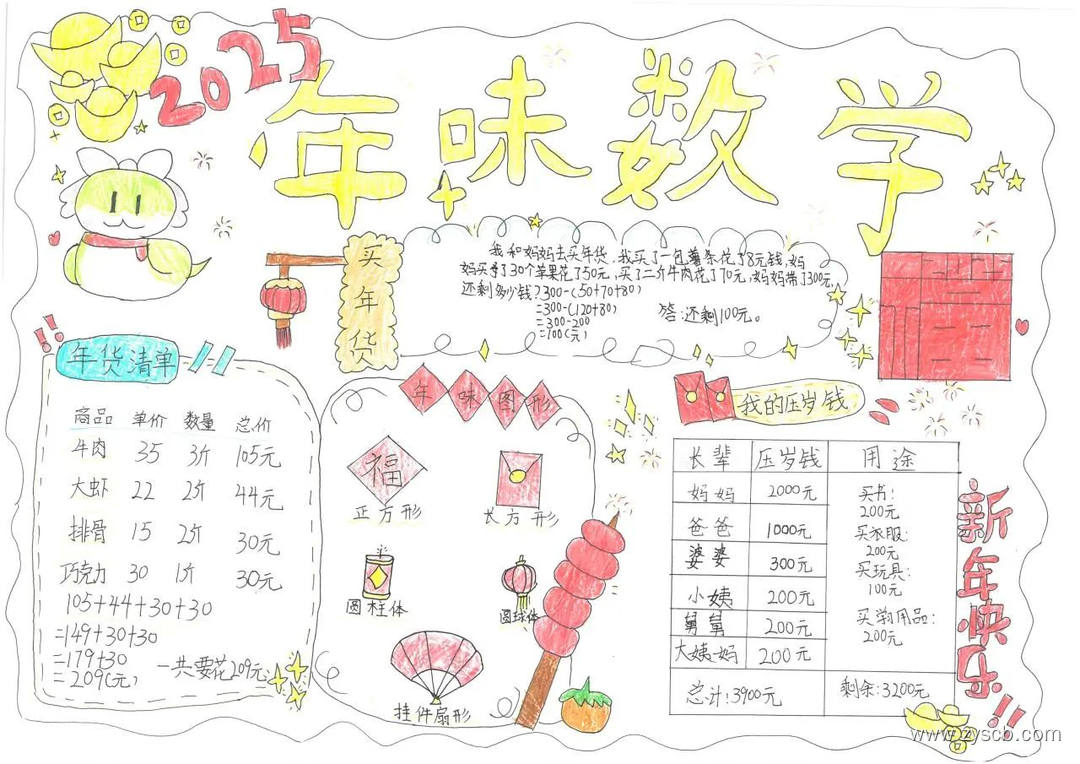 2025
年味数学
买年货
我和妈妈去买年货,我买了一包薯条花了8元钱,妈
妈买了30个苹果花了50元,买了二斤牛肉花了70元,妈妈带了300元,
还剩多少钱?300-(50+70+80)
=300-(120+80)
=300-200
=100(元)
答:还剩100元。
年货清单
商品 单价 数量 总价
牛肉 35 3斤 105元
大虾 22 2斤 44元
排骨 15 2斤 30元
巧克力 30 1斤 30元
105+44+30+30
=149+30+30
=179+30
=209(元)
一共要花209元
年味图形
福
正方形
长方形
圆柱体
圆球体
挂件扇形
我的压岁钱
长辈 压岁钱 用途
妈妈 2000元
爸爸 1000元
婆婆 300元
小姨 200元
舅舅 200元
大姨妈 200元
买书:
200元
买衣服:
200元
买玩具:
100元
买学用品:
200元
总计:3900元 剩余:3200元
新年快乐!!
www.zyscb.com